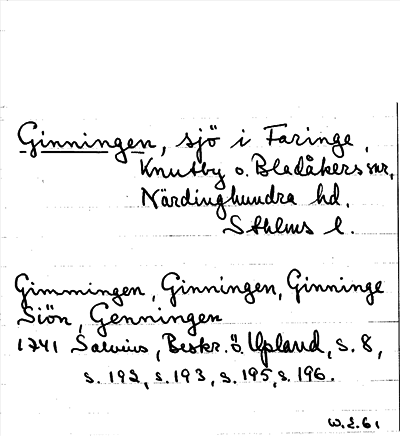 Ginningen, sjö i Faringe,
Knutby o. Bladåkers snr,
Närdinghundra hd.
Sthlms l.
Gimmingen, Ginningen, Ginninge
Siön, Genningen
1741 Salvius, Beskr. ö. Upland, s. 8,
s. 192, s. 193, s. 195, s. 196.